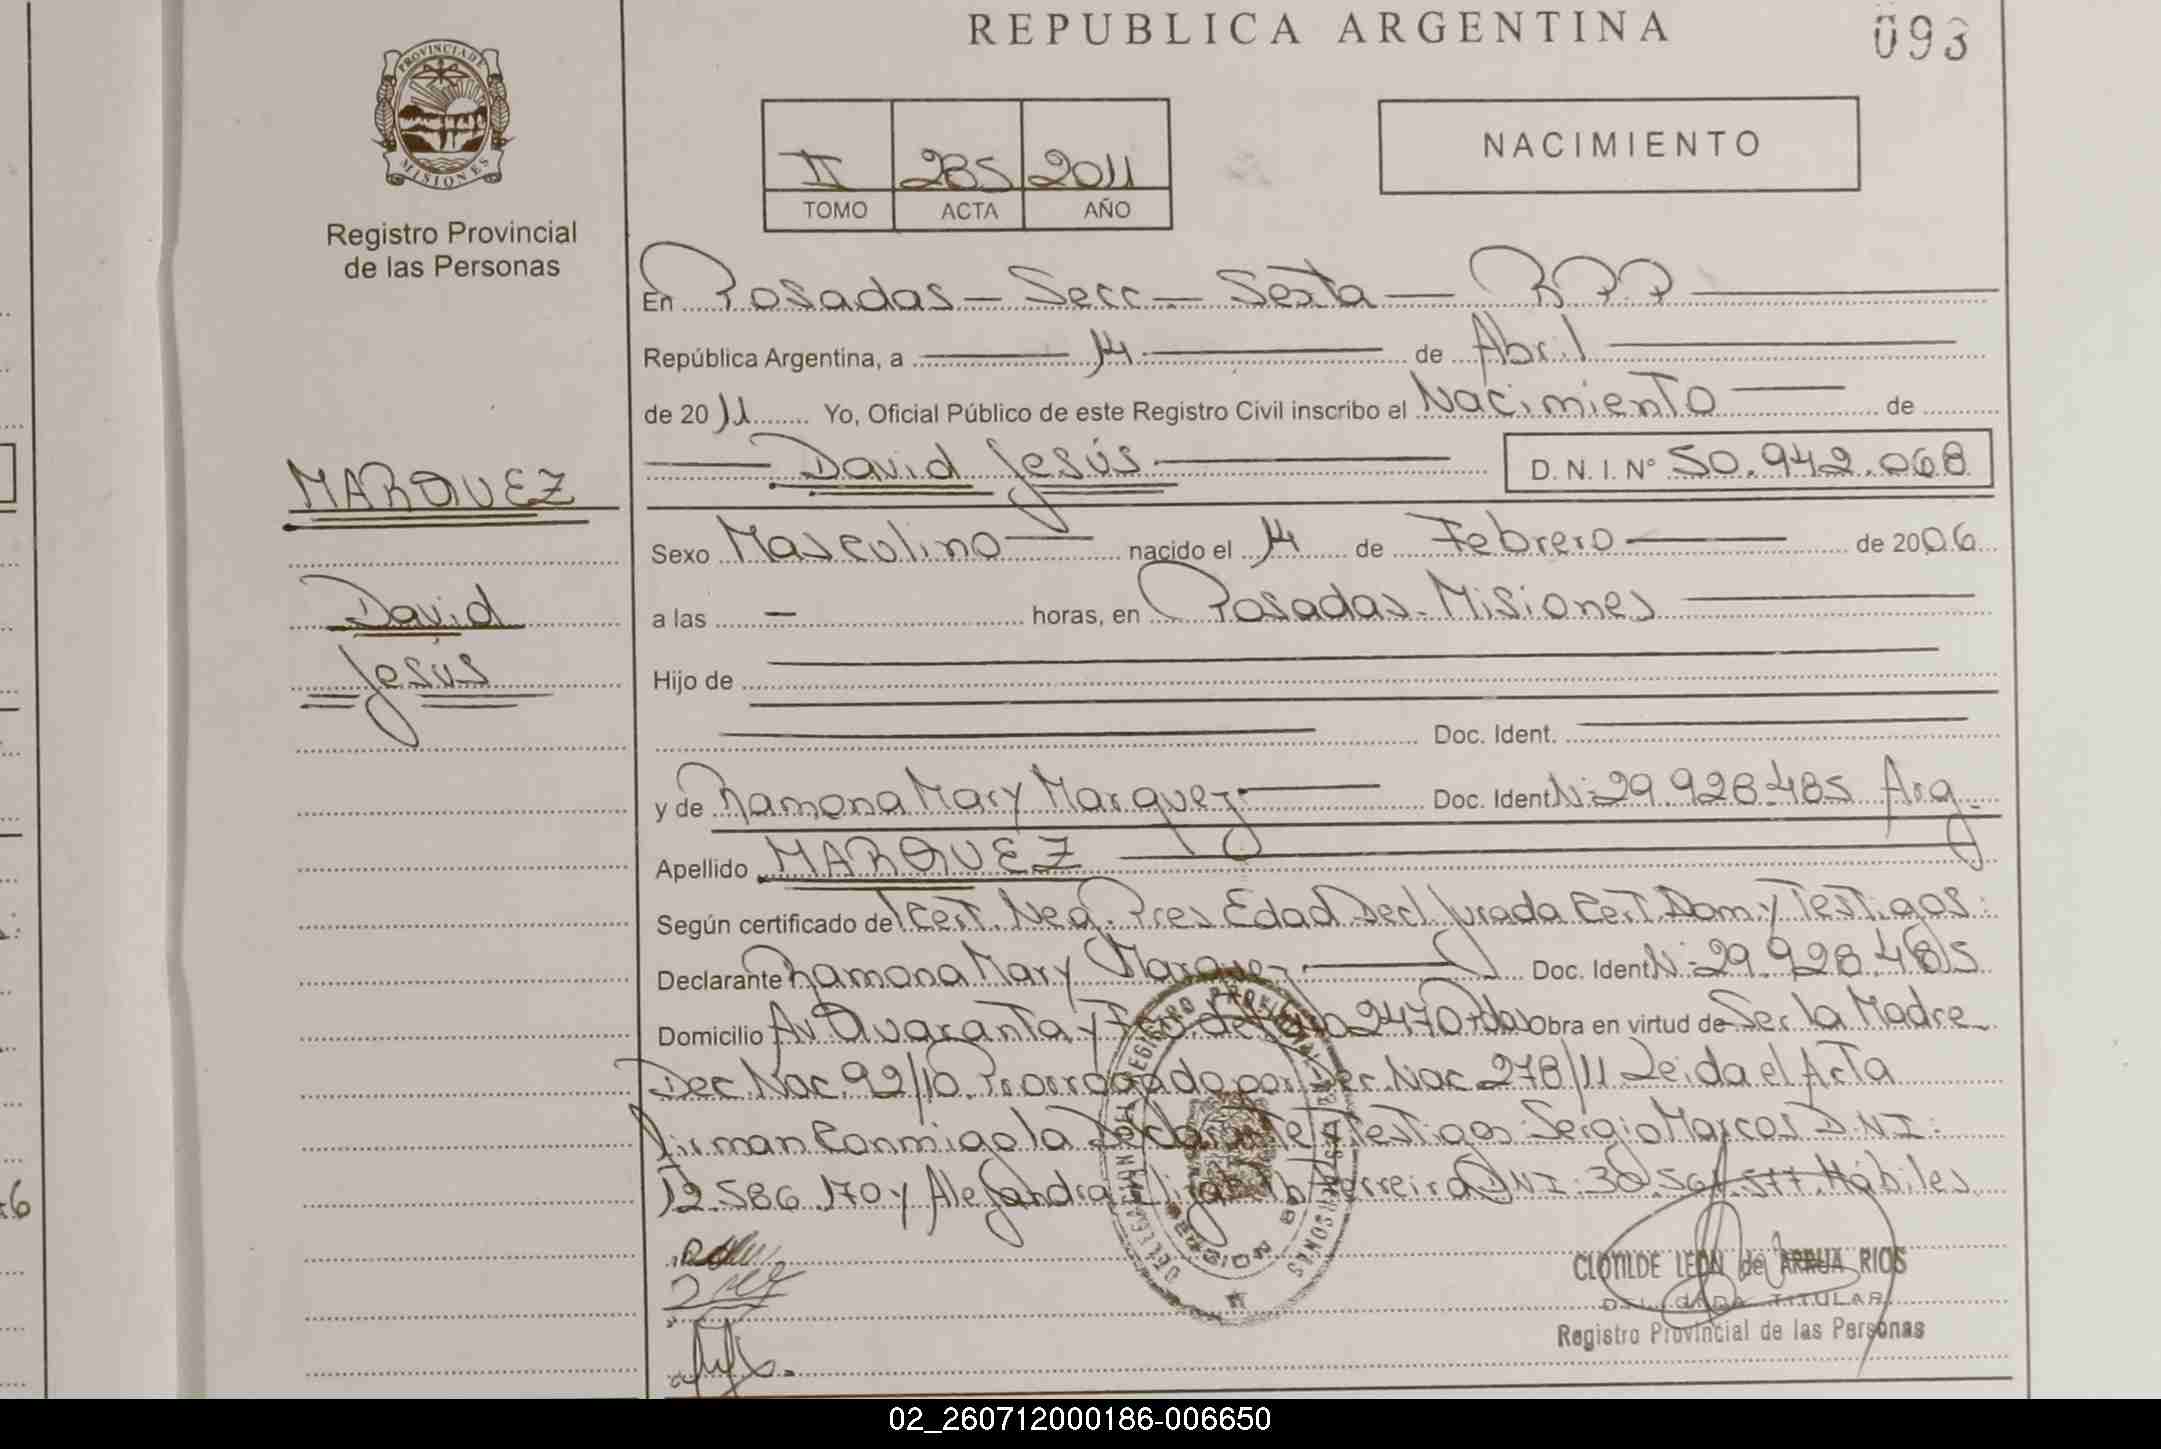 REPUBLICA ARGENTINA
093
PROVINCIA DE
MISIONES
Registro Provincial
de las Personas
II 285 2011
TOMO ACTA AÑO
NACIMIENTO
En Posadas - Secc - Sexta - RPP
República Argentina, a 14 de Abril
de 2011 Yo, Oficial Público de este Registro Civil inscribo el Nacimiento de
David Jesús D. N. I. N° 50.942.068
MARQUEZ
Sexo Masculino nacido el 14 de Febrero de 2006
David
a las - horas, en Posadas - Misiones
Jesús
Hijo de
Doc. Ident.
y de Ramona Mary Marquez Doc. Ident N: 29.928.485 Arg.
Apellido MARQUEZ
Según certificado de Cert. Neg. Pres Edad Decl Jurada Cert. Dom y Testigos:
Declarante Ramona Mary Marquez Doc. Ident N: 29.928.485
Domicilio Av Quaranta y 2470 Pdas Obra en virtud de Ser la Madre
Dec. Nac. 92/10. Prorrogado por Dec. Nac 278/11 Leida el Acta
firman conmigo la Declarante y Testigos: Sergio Marcos D.N.I:
12.586.170 y Alejandra Ferreira DNI: 30.561.577. Hábiles
CLOTILDE LEON de ARRUA RIOS
DELEGADA TITULAR
Registro Provincial de las Personas
02_260712000186-006650